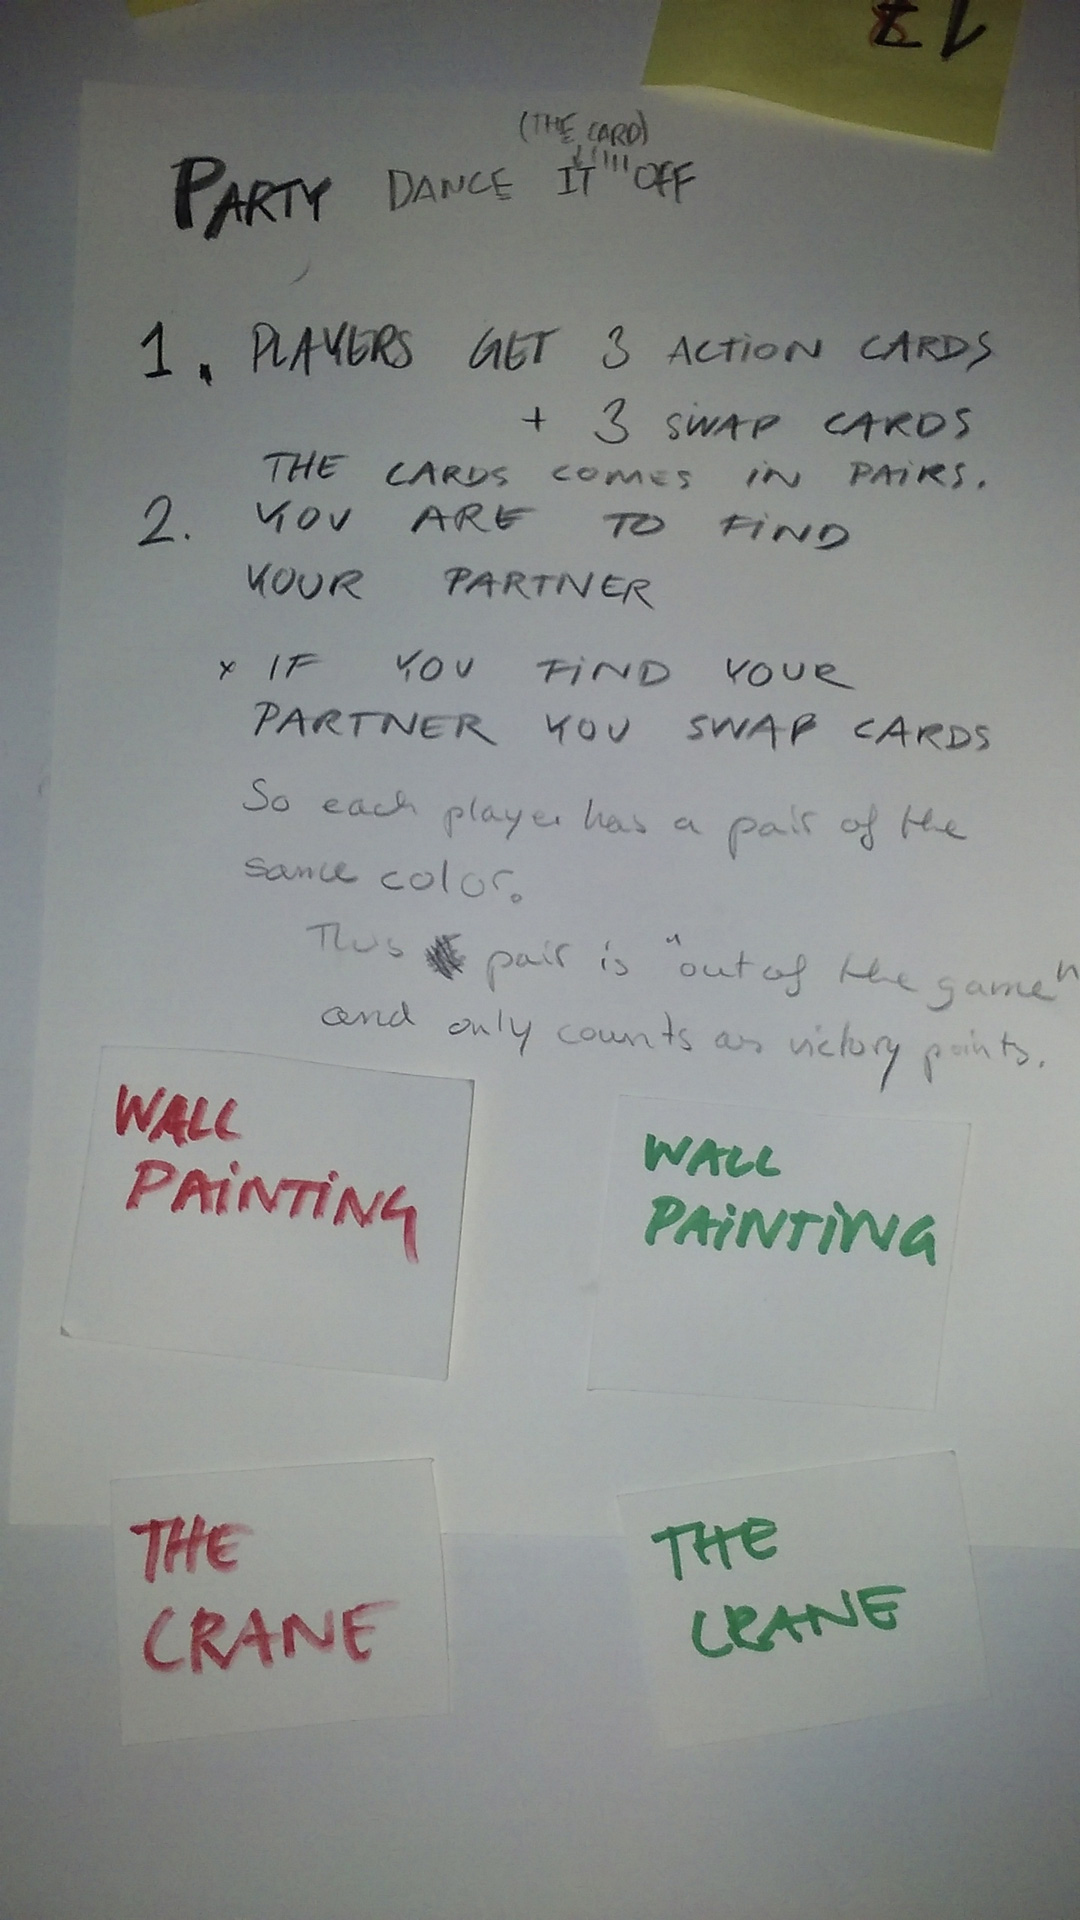 (THE CARD)
PARTY DANCE IT OFF
1. PLAYERS GET 3 ACTION CARDS
+ 3 SWAP CARDS
THE CARDS COMES IN PAIRS.
2. YOU ARE TO FIND
YOUR PARTNER
x IF YOU FIND YOUR
PARTNER YOU SWAP CARDS
So each player has a pair of the
same color.
This pair is "out of the game"
and only counts as victory points.
WALL
PAINTING
WALL
PAINTING
THE
CRANE
THE
CRANE